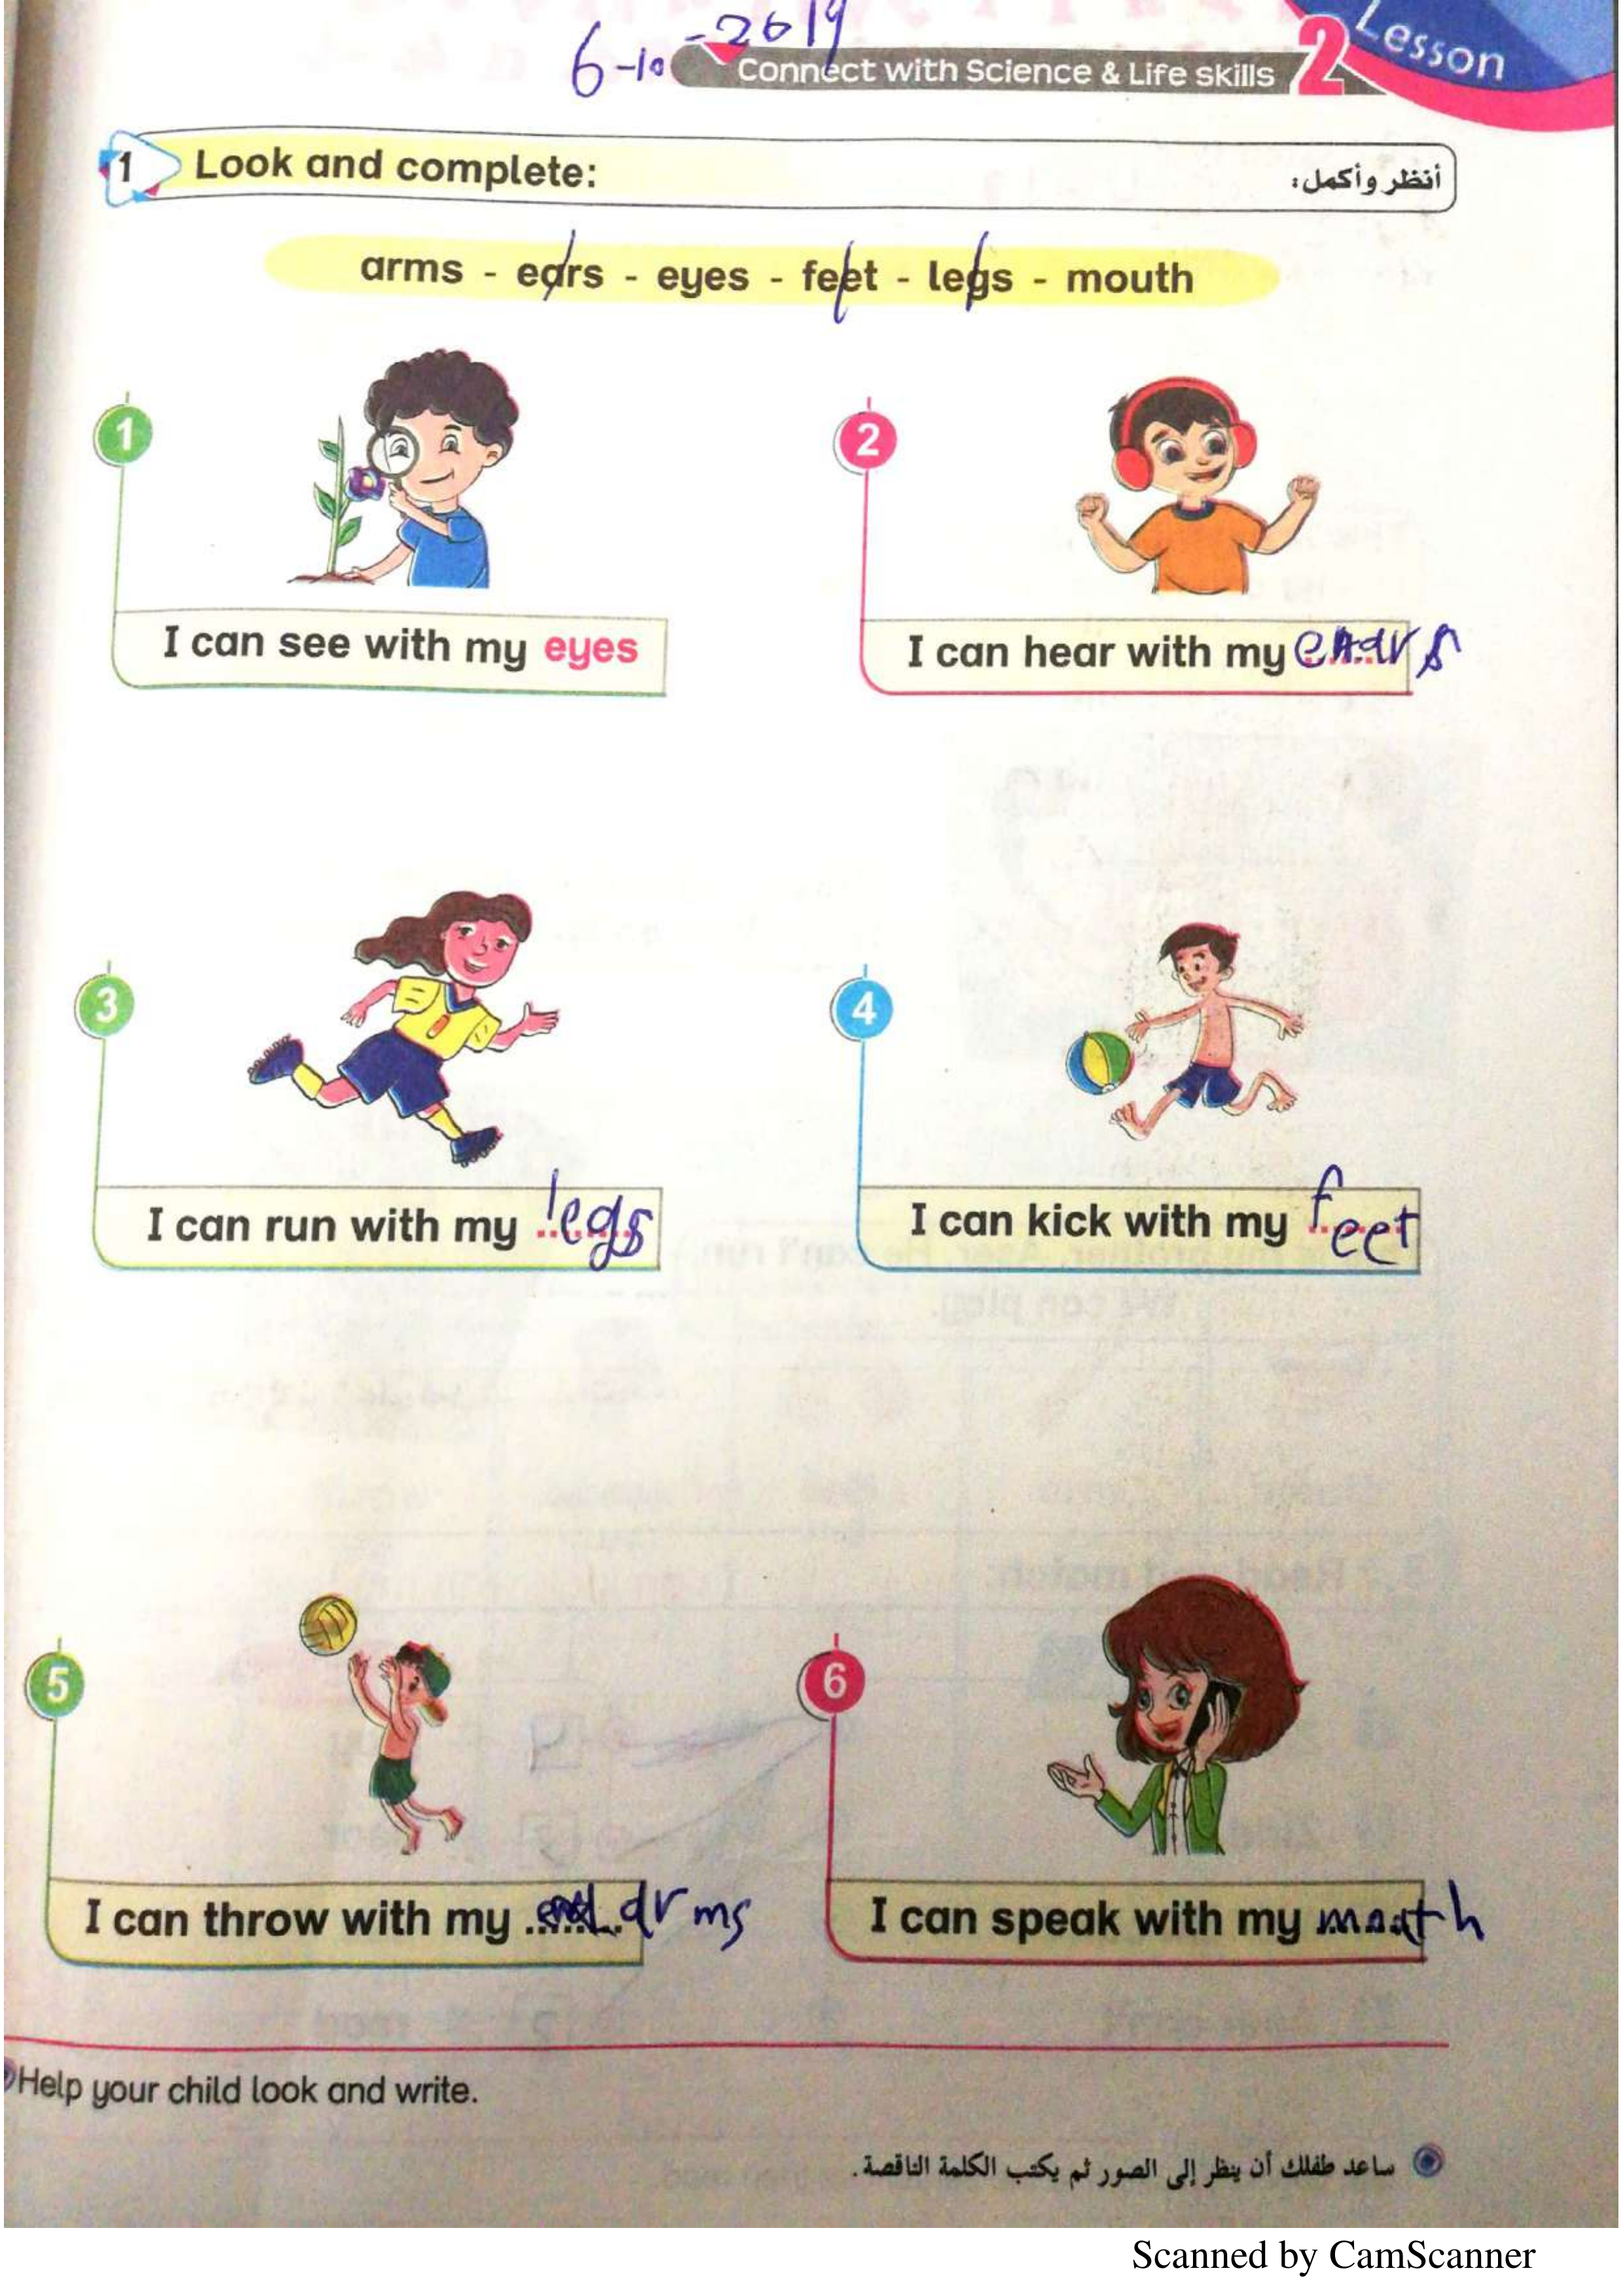 6-10-2019
Connect with Science & Life skills 2 Lesson
1 Look and complete: أنظر وأكمل:
arms - ears - eyes - feet - legs - mouth
1
2
I can see with my eyes
I can hear with my ears
3
4
I can run with my legs
I can kick with my feet
5
6
I can throw with my arms
I can speak with my mouth
Help your child look and write.
ساعد طفلك أن ينظر إلى الصور ثم يكتب الكلمة الناقصة.
Scanned by CamScanner